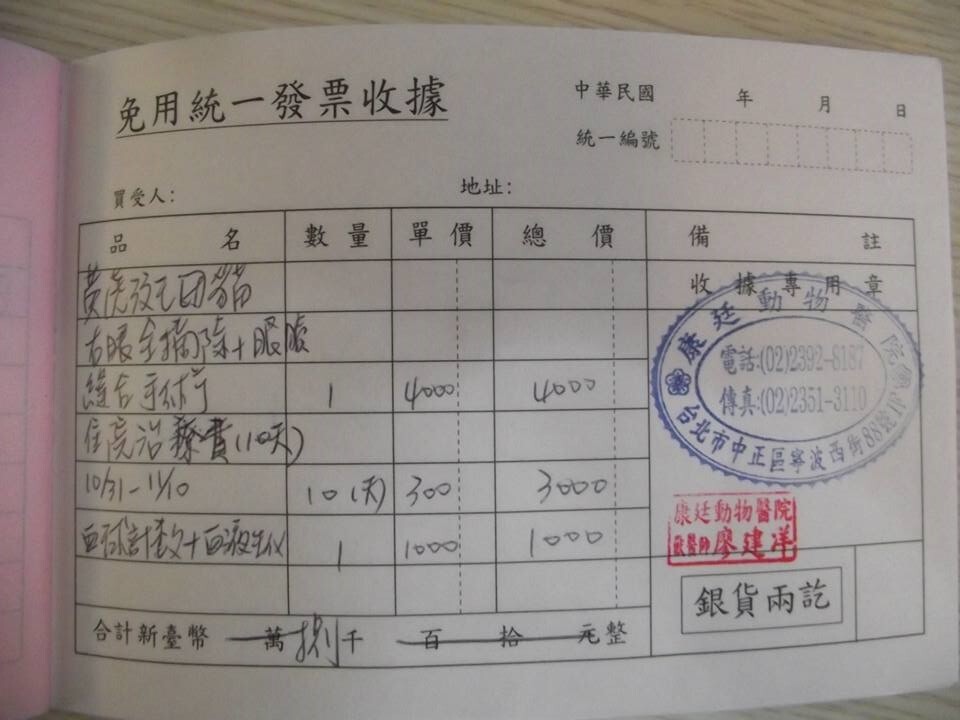 免用統一發票收據
中華民國 年 月 日
統一編號
買受人： 地址：
品名 數量 單價 總價 備註
收據專用章
右眼全摘除+眼瞼
縫合手術 1 4000 4000
住院治療費(10天)
10/31-11/10 10(天) 300 3000
血球計數+血液生化 1 1000 1000
康廷動物醫院
電話:(02)2392-8187
傳真:(02)2351-3110
台北市中正區寧波西街88號
康廷動物醫院
獸醫師 廖建洋
銀貨兩訖
合計新臺幣 萬 捌千 百 拾 元整